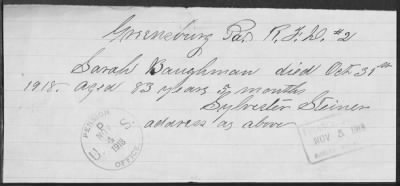 Greensburg Pa. R.F.D. #2
Sarah Baughman died Oct 31st
1918. aged 83 years 5 months
Sylvester Steiner
address as above
PENSION OFFICE
U. S.
NOV 5 1918